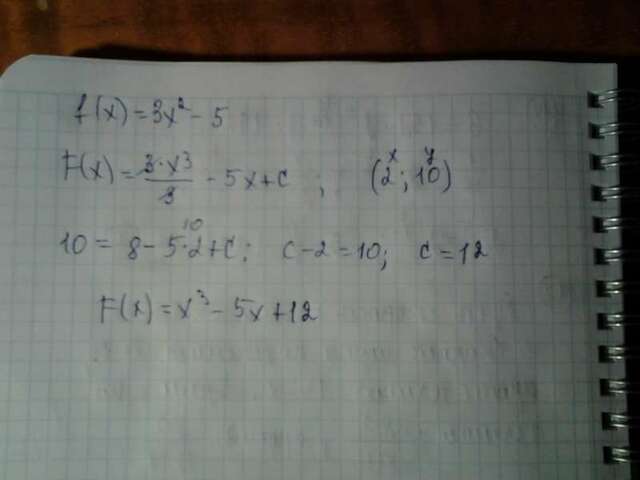 f(x)=3x² - 5
F(x)= 3·x³/3 - 5x+C ; (2; 10) x y
10 = 8 - 5·2+C; C-2=10; C=12 10
F(x)=x³ - 5x+12